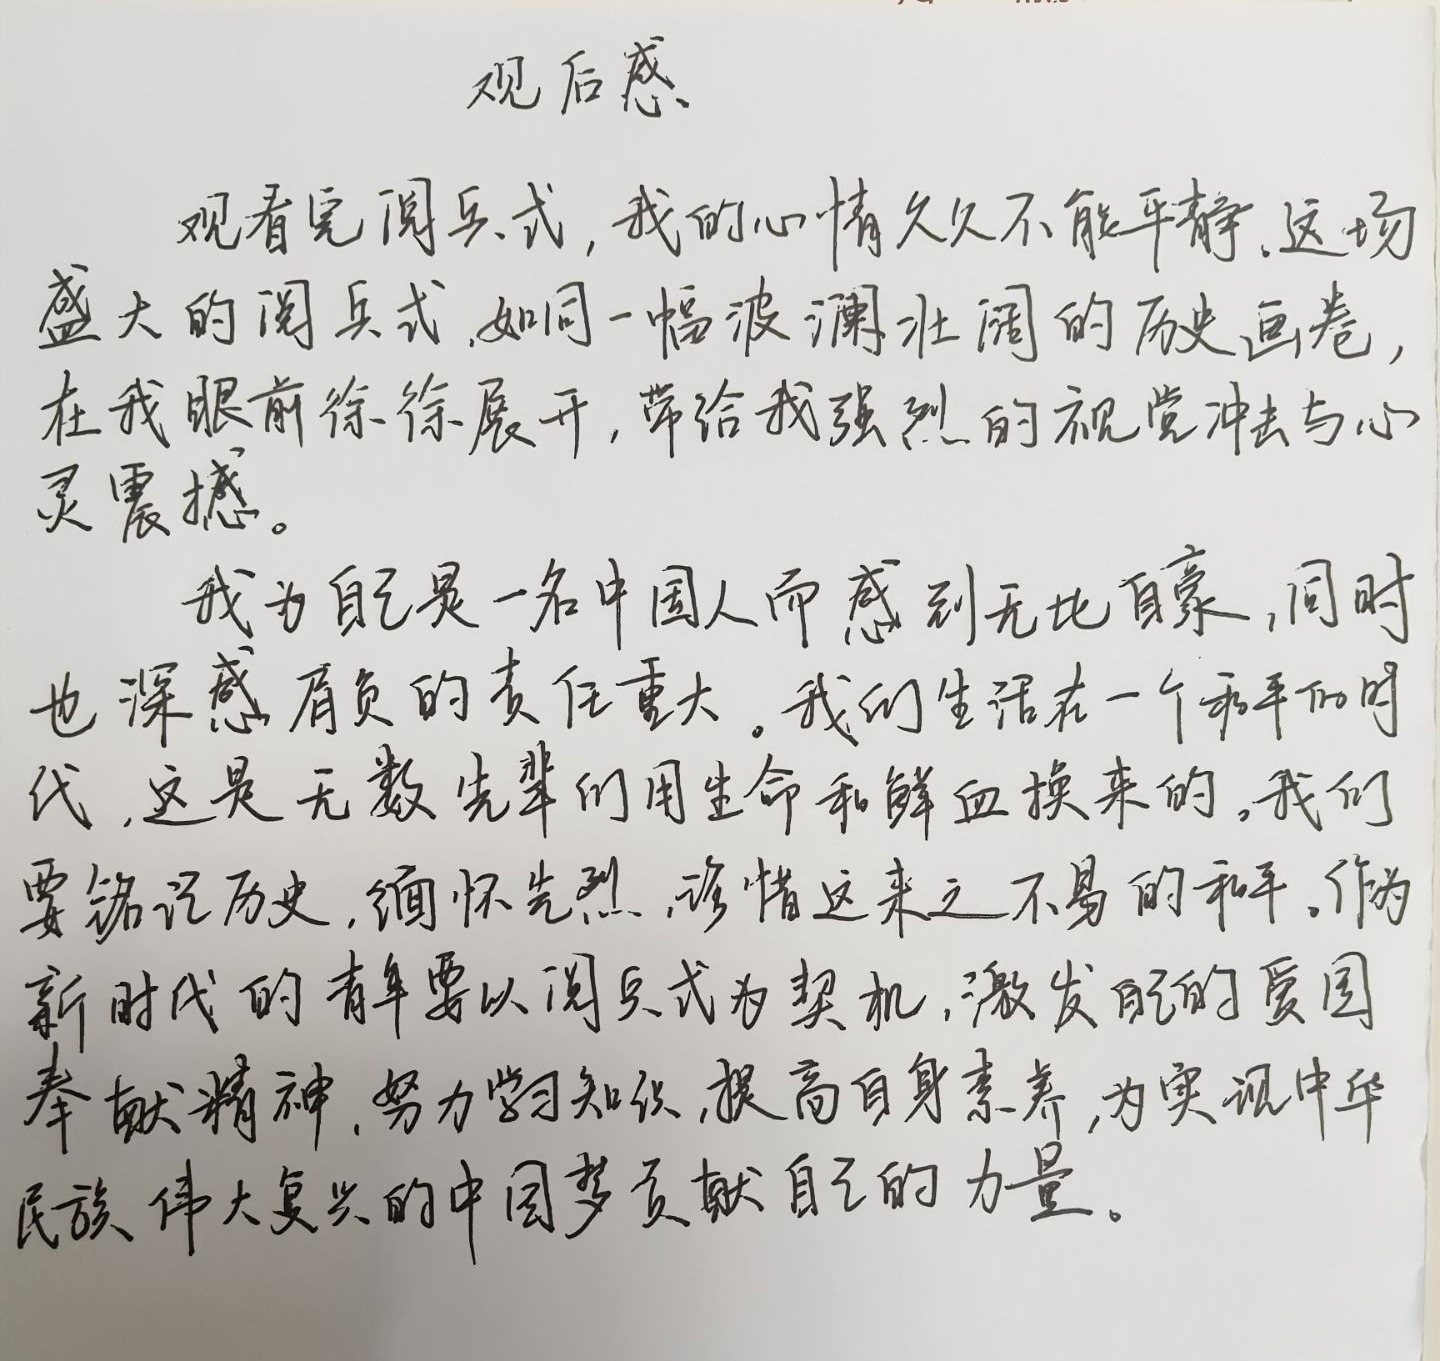 观后感
观看完阅兵式，我的心情久久不能平静。这场
盛大的阅兵式，如同一幅波澜壮阔的历史画卷，
在我眼前徐徐展开，带给我强烈的视觉冲击与心
灵震撼。
我为自己是一名中国人而感到无比自豪，同时
也深感肩负的责任重大。我们生活在一个和平的时
代，这是无数先辈们用生命和鲜血换来的。我们
要铭记历史，缅怀先烈，珍惜这来之不易的和平。作为
新时代的青年要以阅兵式为契机，激发自己的爱国
奉献精神，努力学习知识，提高自身素养，为实现中华
民族伟大复兴的中国梦贡献自己的力量。